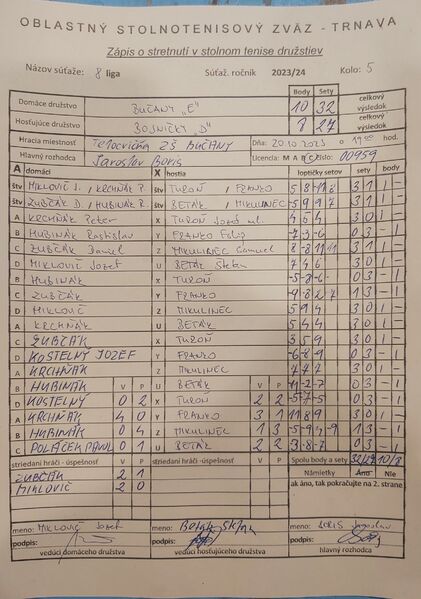 OBLASTNÝ STOLNOTENISOVÝ ZVÄZ - TRNAVA
Zápis o stretnutí v stolnom tenise družstiev
Názov súťaže: 8 liga Súťaž. ročník 2023/24 Kolo: 5
Body Sety
Domáce družstvo BUČANY „E" 10 32 celkový výsledok
Hosťujúce družstvo BOJNIČKY „D" 8 27 celkový výsledok
Hracia miestnosť Telocvičňa ZŠ BUČANY Dňa: 20.10.2023 o hod.
Hlavný rozhodca Jaroslav Boris Licencia: M A B C číslo: 00959
A domáci X hostia loptičky setov sety body
štv MIKLOVIČ J. / KRCHŇÁK P. štv TUROŇ / FRANKO 3 1 1 -
štv ZUBČÁK D. / HUBINÁK R. štv BETÁK / MIKULINEC 3 1 1 -
A KRCHŇÁK Peter X TUROŇ 3 0 1 -
B HUBINÁK Rastislav Y FRANKO Filip 0 3 - 1
C ZUBČÁK Daniel Z MIKULINEC Samuel 3 1 1 -
D MIKLOVIČ Jozef U BETÁK 7 4 6 3 0 1 -
B HUBINÁK X TUROŇ -5 -8 -6 0 3 - 1
C ZUBČÁK Y FRANKO 1 3 - 1
D MIKLOVIČ Z MIKULINEC 5 9 4 3 0 1 -
A KRCHŇÁK U BETÁK 5 4 4 3 0 1 -
C ZUBČÁK X TUROŇ 3 5 9 3 0 1 -
D KOSTELNÝ JOZEF Y FRANKO -6 -8 -9 0 3 - 1
A KRCHŇÁK Z MIKULINEC 3 0 1 -
B HUBINÁK V P U BETÁK V P -11 -2 -7 0 3 - 1
D KOSTELNÝ 0 2 X TUROŇ 2 2 -5 -7 -5 0 3 - 1
A KRCHŇÁK 4 0 Y FRANKO 3 1 3 0 1 -
B HUBINÁK 0 4 Z MIKULINEC 1 3 1 3 - 1
C POLÁČEK PAVOL 0 1 U BETÁK 2 2 -3 -8 -7 0 3 - 1
striedaní hráči - úspešnosť V P striedaní hráči - úspešnosť V P Spolu body a sety 10/8
ZUBČÁK 2 1 Námietky Áno Nie
MIKLOVIČ 2 0 ak áno, tak pokračujte na 2. strane
meno: MIKLOVIČ Jozef meno: meno: BORIS Jaroslav
podpis: podpis: podpis:
vedúci domáceho družstva vedúci hosťujúceho družstva hlavný rozhodca